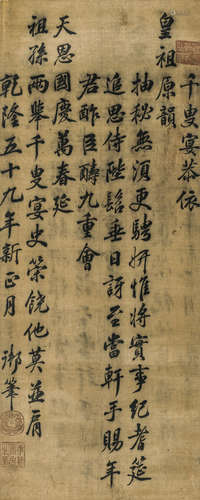 千叟宴恭依
皇祖原韻
抽秘無須更騁妍惟將實事紀耆筵
追思侍陛髫垂日訝至當軒手賜年
君酢臣醻九重會
天恩國慶萬春延
祖孫兩舉千叟宴史策饒他莫並肩
乾隆五十九年新正月 御筆